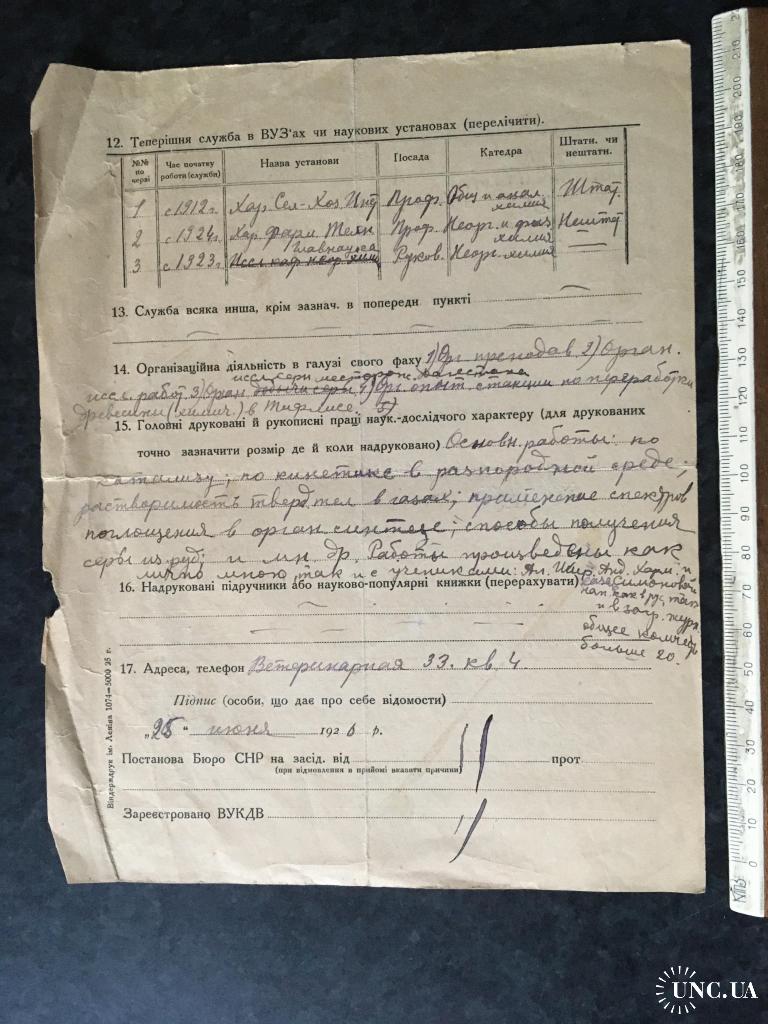 12. Теперішня служба в ВУЗ'ах чи наукових установах (перелічити).
№№ по черзі Час початку роботи (служби) Назва установи Посада Катедра Штатн. чи нештатн.
1 с 1912 г. Хар. Сел-Хоз. Инст Проф. Общ и анал. химия Штат.
2 с 1924 г. Хар. фарм. Техн Проф. Неорг. и физ химия Нештат
Главнаука
3 с 1923 г. Иссл. каф неор. хим Руков. Неорг. химия —
13. Служба всяка инша, крім зазнач. в попередн пункті —
14. Організаційна діяльність в галузі свого фаху 1) Орг преподав 2) Орган.
иссл. серн месторож. Дагестана
иссл. работ 3) Орган добычи серы 4) Орг. опыт. станции по переработки
древесины (химич.) в Тифлисе. 5)
15. Головні друковані й рукописні праці наук.-дослідчого характеру (для друкованих
точно зазначити розмір де й коли надруковано) Основн. работы: по
катализу; по кинетике в разнородной среде;
растворимость тверд тел в газах; применение спектров
поглощения в орган синтезе; способы получения
серы из руд; и мн. др. Работы произведены как
лично мною, так и с учениками:
16. Надруковані підручники або науково-популярні книжки (перерахувати)
нап. как в рус, так
и в загр. журн.
общее количество
больше 20.
17. Адреса, телефон Ветеринарная 33. кв 4
Підпис (особи, що дає про себе відомости)
„25" июня 1926 р.
Постанова Бюро СНР на засід. від прот
(при відмовлення в прийомі вказати причини)
Зареєстровано ВУКДВ
Віндерждрук ім. Леніна 1074—5000 25 г.
0 10 20 30 40 50 60 70 80 90 100 110 120 130 140 150 160 170 180 190 200 210
UNC.UA